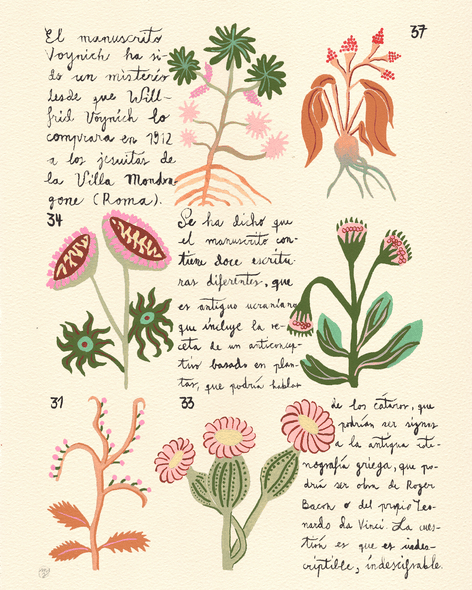 El manuscrito
Voynich ha si-
do un misterio
desde que Will-
frid Voynich lo
comprara en 1912
a los jesuitas de
la Villa Mondra-
gone (Roma).
37
34
Se ha dicho que
el manuscrito con-
tiene doce escritu-
ras diferentes, que
es antiguo ucraniano
que incluye la re-
ceta de un anticoncep-
tivo basado en plan-
tas, que podría hablar
31
33
de los cátaros, que
podrían ser signos
a la antigua este-
nografía griega, que po-
dría ser obra de Roger
Bacon o del propio Leo-
nardo da Vinci. La cues-
tión es que es indes-
criptible, indescifrable.